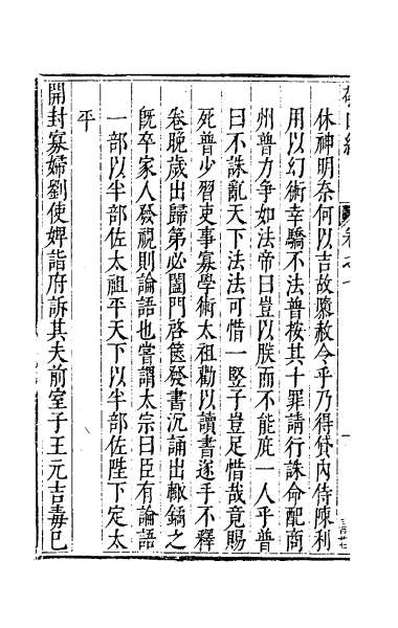 休神明奈何以吉故隳赦令乎乃得貸內侍陳利
用以幻術幸驕不法普按其十罪請行誅命配商
州普力爭如法帝曰豈以朕而不能庇一人乎普
曰不誅亂天下法法可惜一豎子豈足惜哉竟賜
死普少習吏事寡學術太祖勸以讀書遂手不釋
卷晚歲出歸第必闔門啓篋發書沉誦出輙鐍之
旣卒家人發視則論語也嘗謂太宗曰臣有論語
一部以半部佐太祖平天下以半部佐陛下定太
平
開封寡婦劉使婢詣府訴其夫前室子王元吉毒巳